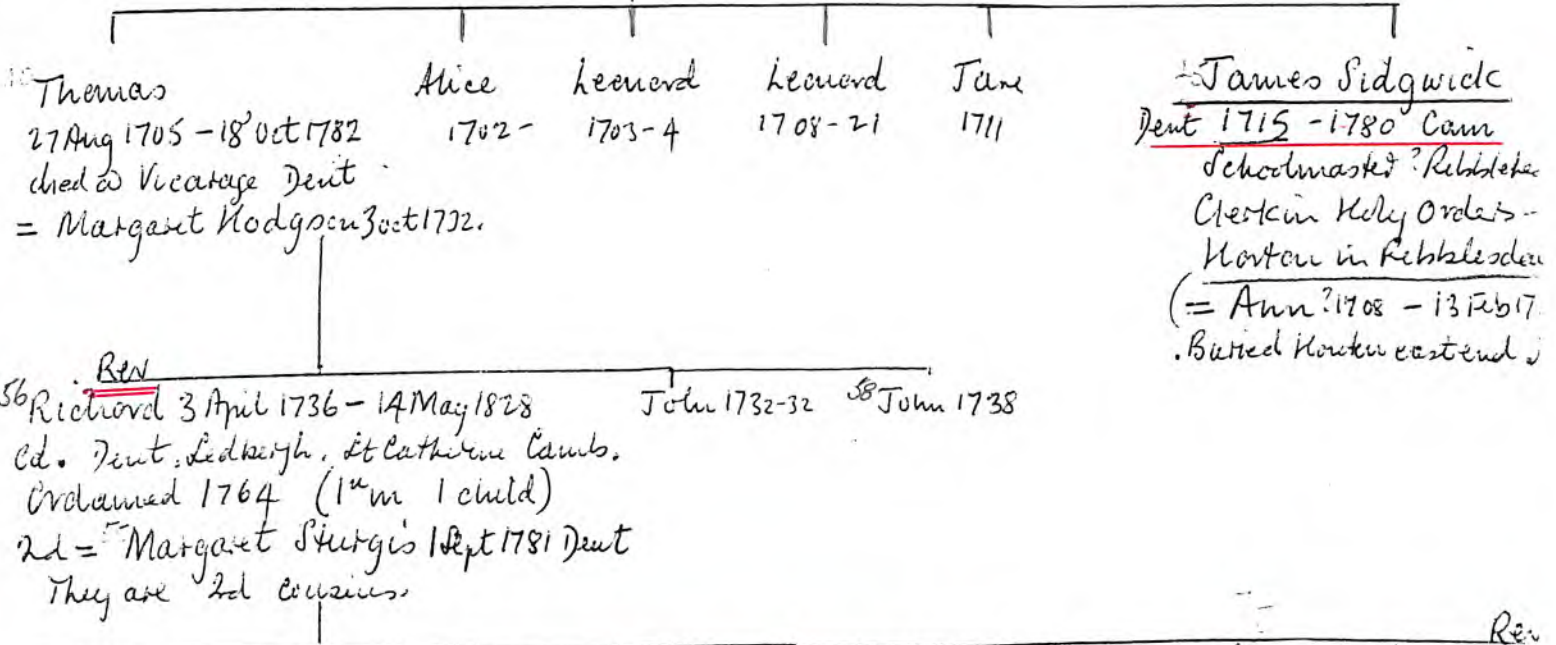 Thomas
27 Aug 1705 - 18 Oct 1782
died @ Vicarage Dent
= Margaret Hodgson 3 oct 1732.
Alice
1702-
Leonard
1703-4
Leonard
1708-21
Jane
1711
James Sidgwick
Dent 1715 - 1780 Cam
Schoolmaster ?
Clerk in Holy Orders -
Horton in
(= Ann ?1708 - 13 Feb 17
. Buried Horton east end
Rev
56 Richard 3 April 1736 - 14 May 1828
Ed. Dent, Sedbergh, St Catherine Camb.
Ordained 1764 (1st m 1 child)
2d = Margaret Sturgis 1 Sept 1781 Dent
They are 2d cousins.
John 1732-32
58 John 1738
Rev